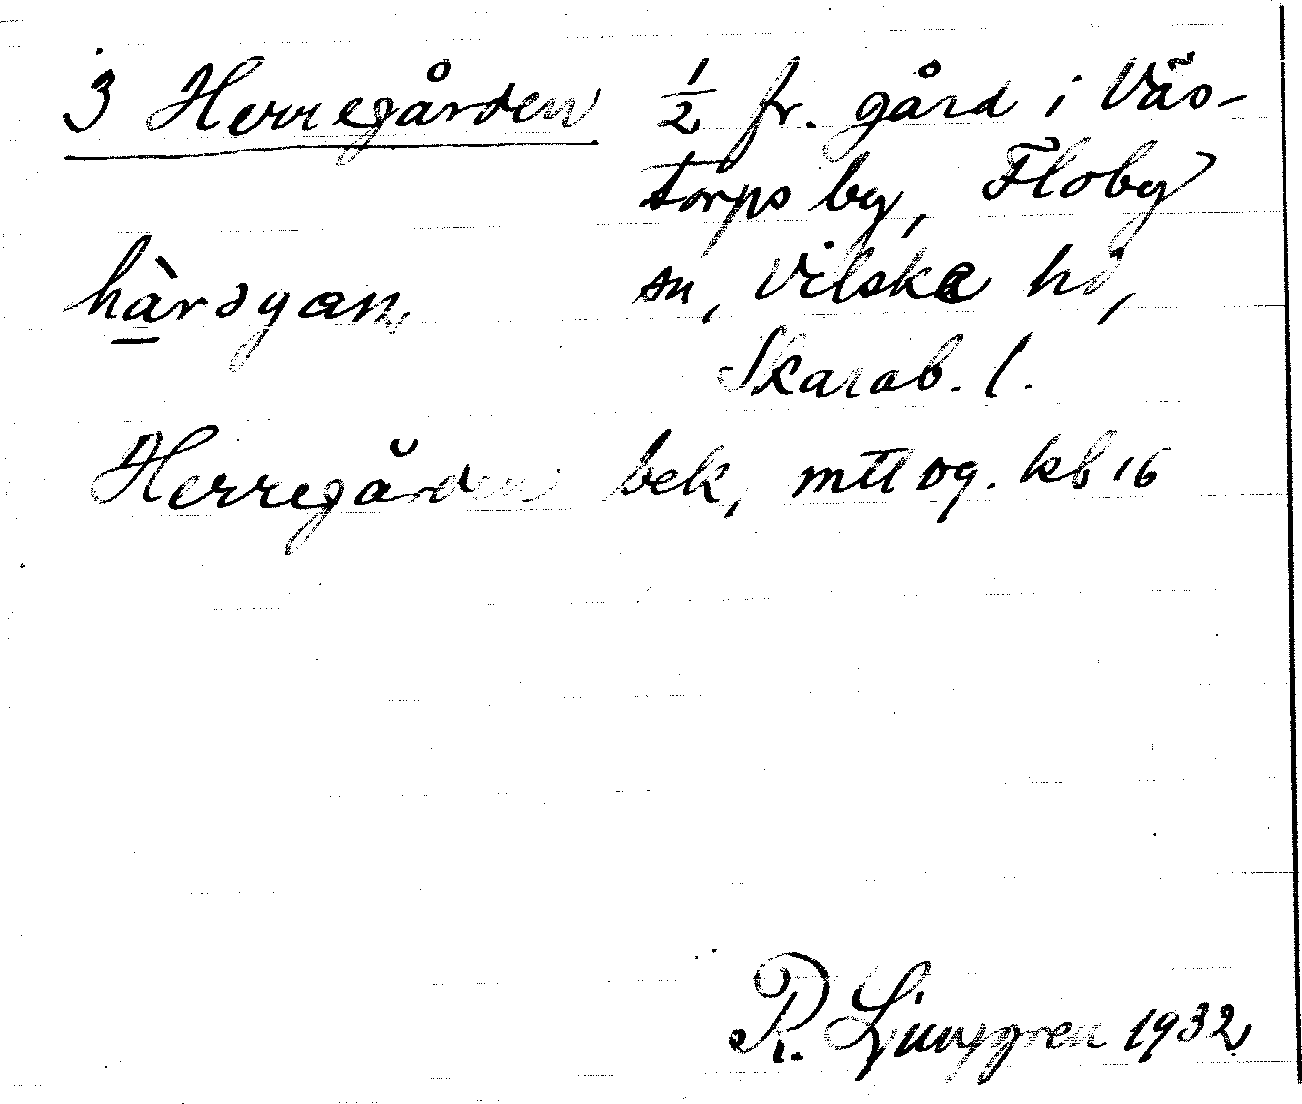 3 Herregården ½ fr. gård i Väs-
torps by, Floby
hàrəgan, sn, Vilske hd,
Skarab. l.
Herregården bek, mtl og. kb 16
R. Ljunggren 1932